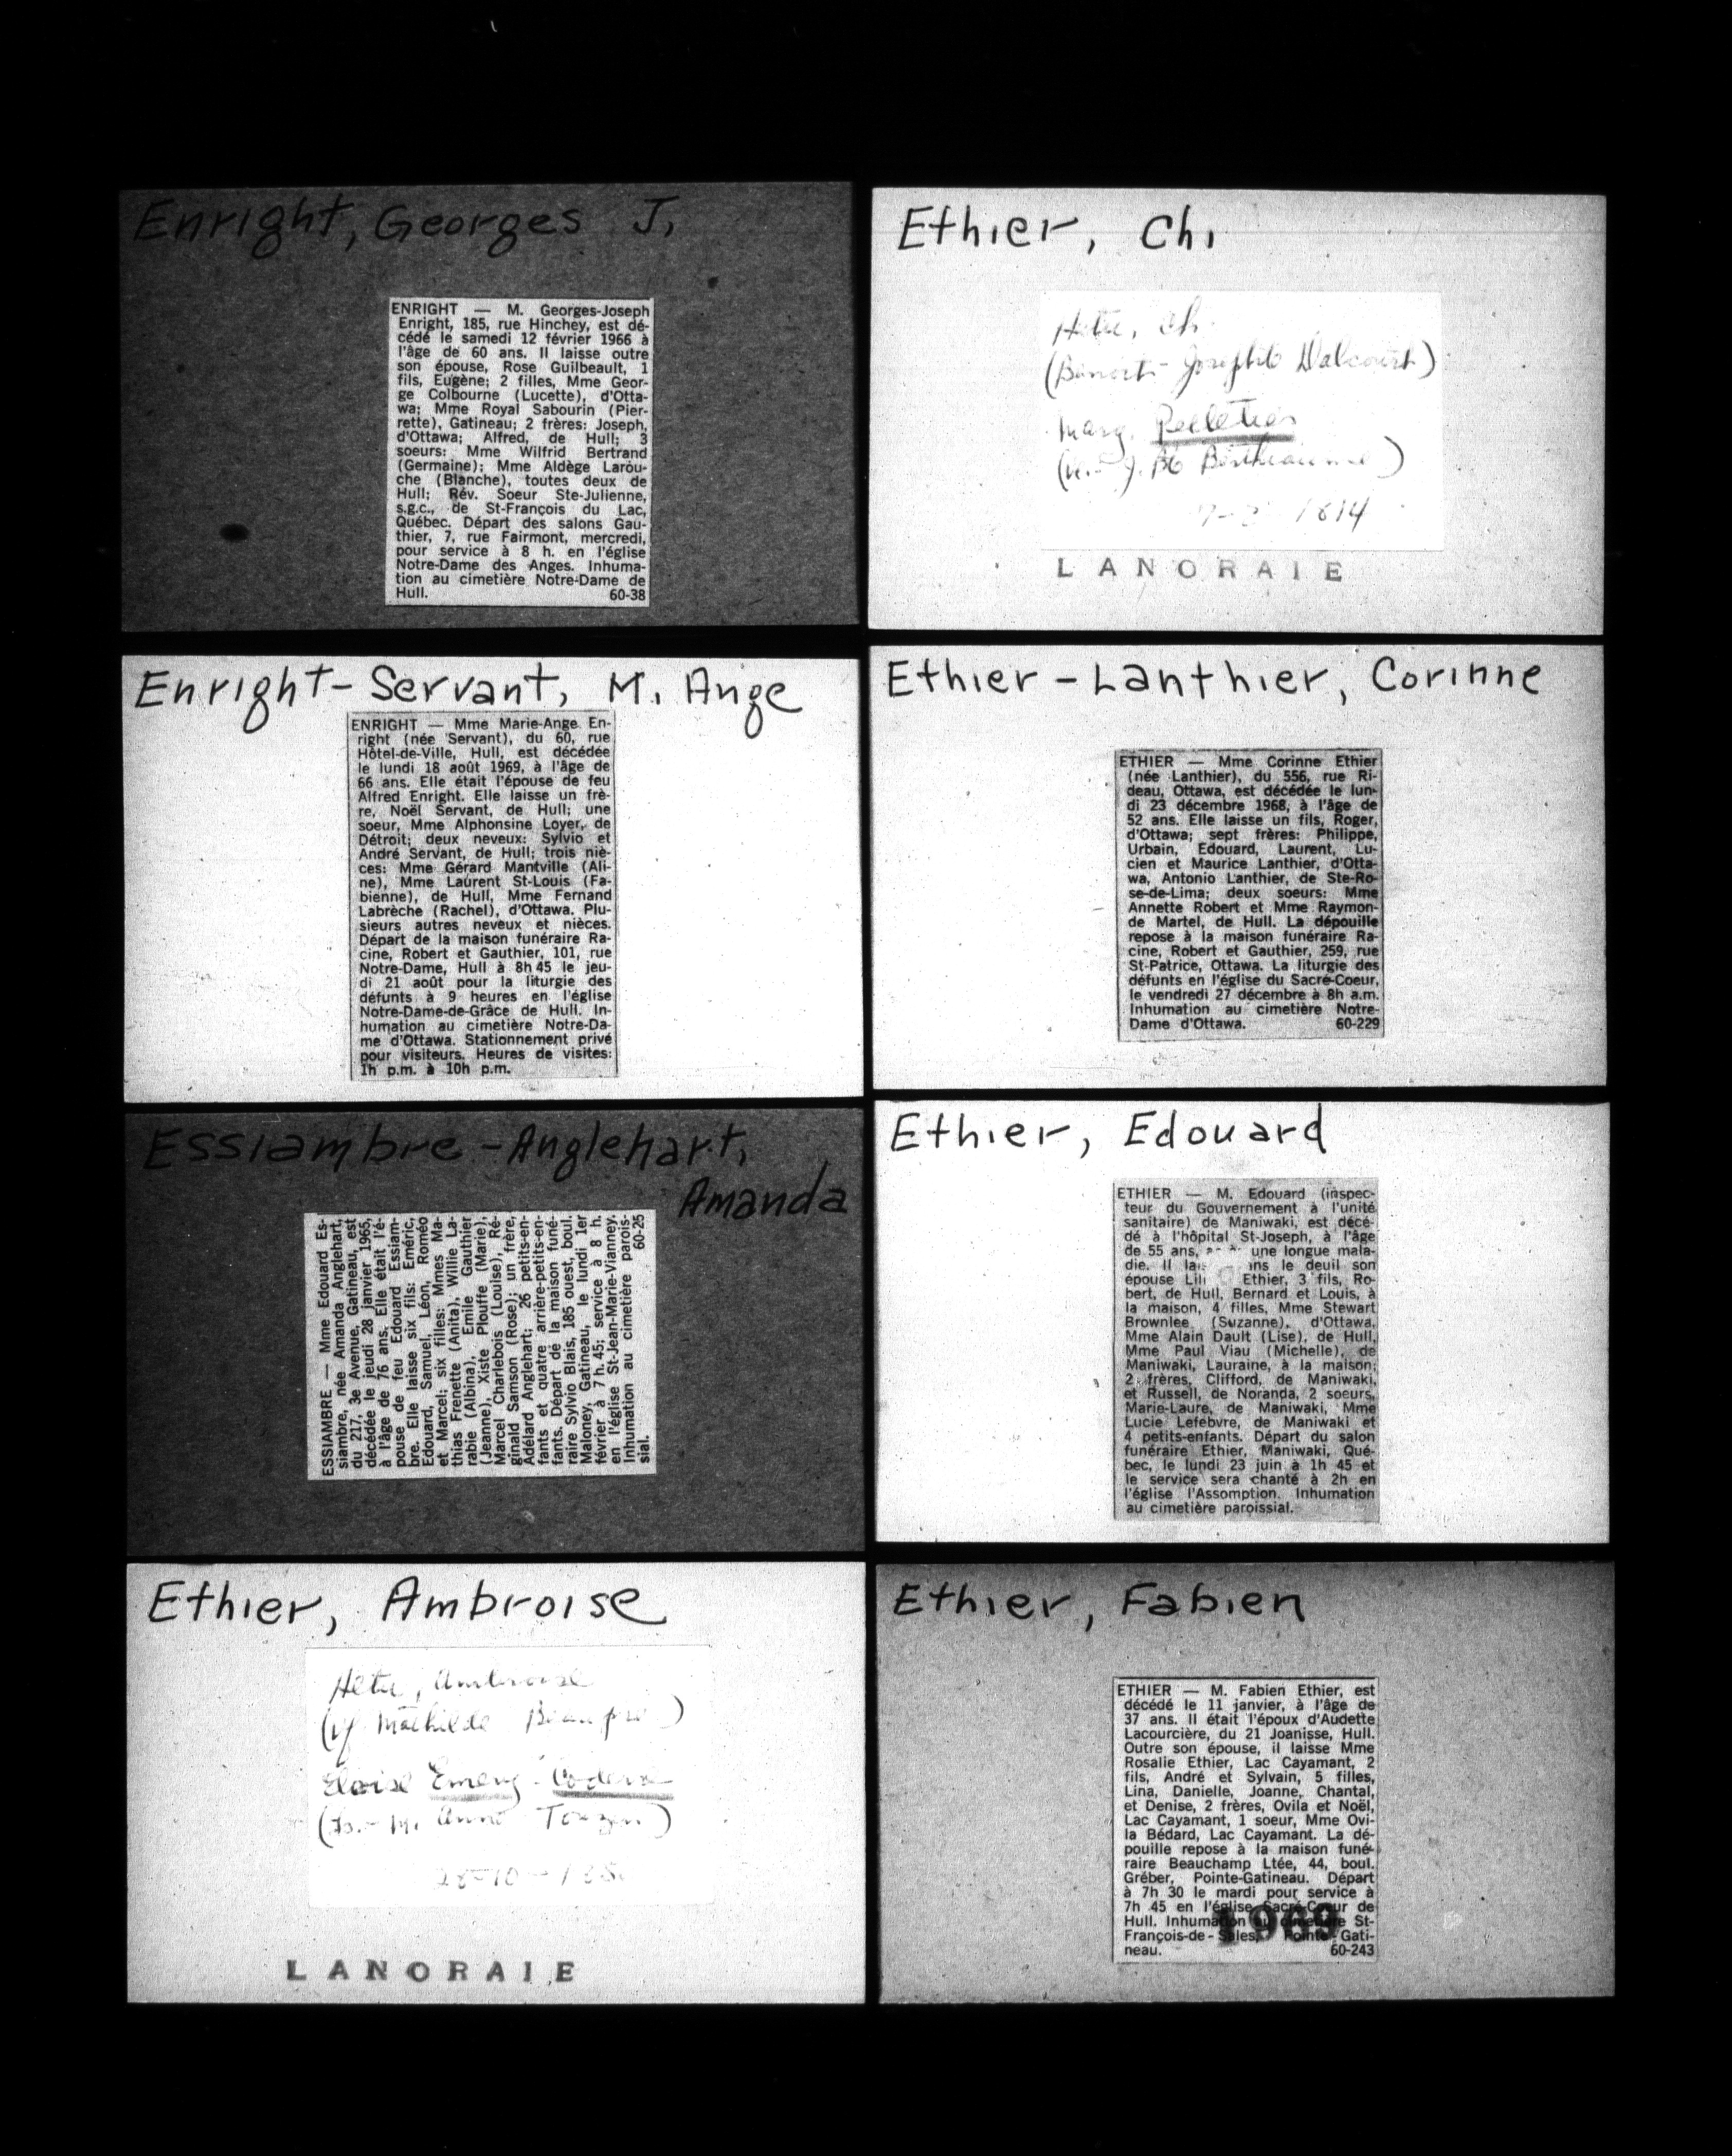 Enright, Georges J.
ENRIGHT — M. Georges-Joseph
Enright, 185, rue Hinchey, est dé-
cédé le samedi 12 février 1966 à
l'âge de 60 ans. Il laisse outre
son épouse, Rose Guilbeault, 1
fils, Eugène; 2 filles, Mme Geor-
ge Colbourne (Lucette), d'Otta-
wa; Mme Royal Sabourin (Pier-
rette), Gatineau; 2 frères: Joseph,
d'Ottawa; Alfred, de Hull; 3
soeurs: Mme Wilfrid Bertrand
(Germaine); Mme Aldège Larou-
che (Blanche), toutes deux de
Hull; Rév. Soeur Ste-Julienne,
s.g.c., de St-François du Lac,
Québec. Départ des salons Gau-
thier, 7, rue Fairmont, mercredi,
pour service à 8 h. en l'église
Notre-Dame des Anges. Inhuma-
tion au cimetière Notre-Dame de
Hull. 60-38
Enright-Servant, M. Ange
ENRIGHT — Mme Marie-Ange En-
right (née Servant), du 60, rue
Hôtel-de-Ville, Hull, est décédée
le lundi 18 août 1969, à l'âge de
66 ans. Elle était l'épouse de feu
Alfred Enright. Elle laisse un frè-
re, Noël Servant, de Hull; une
soeur, Mme Alphonsine Loyer, de
Détroit; deux neveux: Sylvio et
André Servant, de Hull; trois niè-
ces: Mme Gérard Mantville (Ali-
ne), Mme Laurent St-Louis (Fa-
bienne), de Hull, Mme Fernand
Labrèche (Rachel), d'Ottawa. Plu-
sieurs autres neveux et nièces.
Départ de la maison funéraire Ra-
cine, Robert et Gauthier, 101, rue
Notre-Dame, Hull à 8h 45 le jeu-
di 21 août pour la liturgie des
défunts à 9 heures en l'église
Notre-Dame-de-Grâce de Hull. In-
humation au cimetière Notre-Da-
me d'Ottawa. Stationnement privé
pour visiteurs. Heures de visites:
1h p.m. à 10h p.m.
Essiambre-Anglehart,
Amanda
ESSIAMBRE — Mme Edouard Es-
siambre, née Amanda Anglehart,
du 217, 3e Avenue, Gatineau, est
décédée le jeudi 28 janvier 1965,
à l'âge de 76 ans. Elle était l'é-
pouse de feu Edouard Essiam-
bre. Elle laisse six fils: Eméric,
Edouard, Samuel, Léon, Roméo
et Marcel; six filles: Mmes Ma-
thias Frenette (Anita), Willie La-
rabie (Albina), Emile Gauthier
(Jeanne), Xiste Plouffe (Marie),
Marcel Charlebois (Louise), Ré-
ginald Samson (Rose); un frère,
Adélard Anglehart; 26 petits-en-
fants et quatre arrière-petits-en-
fants. Départ de la maison funé-
raire Sylvio Blais, 185 ouest, boul.
Maloney, Gatineau, le lundi 1er
février à 7 h. 45; service à 8 h.
en l'église St-Jean-Marie-Vianney.
Inhumation au cimetière parois-
sial. 60-25
Ethier, Ambroise
Hetu, Ambroise
(vf Mathilde )
Eloise Emery - Coderre
(Frs. - M. Anne )
28-10-
LANORAIE
Ethier, Ch.
Hetu, Ch.
(Benoit - Josephte Dalcourt)
Marg. Pelletier
(v. J. Bte Berthiaume)
1814
LANORAIE
Ethier-Lanthier, Corinne
ETHIER — Mme Corinne Ethier
(née Lanthier), du 556, rue Ri-
deau, Ottawa, est décédée le lun-
di 23 décembre 1968, à l'âge de
52 ans. Elle laisse un fils, Roger,
d'Ottawa; sept frères: Philippe,
Urbain, Edouard, Laurent, Lu-
cien et Maurice Lanthier, d'Otta-
wa, Antonio Lanthier, de Ste-Ro-
se-de-Lima; deux soeurs: Mme
Annette Robert et Mme Raymon-
de Martel, de Hull. La dépouille
repose à la maison funéraire Ra-
cine, Robert et Gauthier, 259, rue
St-Patrice, Ottawa. La liturgie des
défunts en l'église du Sacré-Coeur,
le vendredi 27 décembre à 8h a.m.
Inhumation au cimetière Notre-
Dame d'Ottawa. 60-229
Ethier, Edouard
ETHIER — M. Edouard (inspec-
teur du Gouvernement à l'unité
sanitaire) de Maniwaki, est décé-
dé à l'hôpital St-Joseph, à l'âge
de 55 ans, une longue mala-
die. Il le deuil son
épouse Ethier, 3 fils, Ro-
bert, de Hull, Bernard et Louis, à
la maison, 4 filles, Mme Stewart
Brownlee (Suzanne), d'Ottawa,
Mme Alain Dault (Lise), de Hull,
Mme Paul Viau (Michelle), de
Maniwaki, Lauraine, à la maison;
2 frères, Clifford, de Maniwaki,
et Russell, de Noranda, 2 soeurs,
Marie-Laure, de Maniwaki, Mme
Lucie Lefebvre, de Maniwaki et
4 petits-enfants. Départ du salon
funéraire Ethier, Maniwaki, Qué-
bec, le lundi 23 juin à 1h 45 et
le service sera chanté à 2h en
l'église l'Assomption. Inhumation
au cimetière paroissial.
Ethier, Fabien
ETHIER — M. Fabien Ethier, est
décédé le 11 janvier, à l'âge de
37 ans. Il était l'époux d'Audette
Lacourcière, du 21 Joanisse, Hull.
Outre son épouse, il laisse Mme
Rosalie Ethier, Lac Cayamant, 2
fils, André et Sylvain, 5 filles,
Lina, Danielle, Joanne, Chantal,
et Denise, 2 frères, Ovila et Noël,
Lac Cayamant, 1 soeur, Mme Ovi-
la Bédard, Lac Cayamant. La dé-
pouille repose à la maison funé-
raire Beauchamp Ltée, 44, boul.
Gréber, Pointe-Gatineau. Départ
à 7h 30 le mardi pour service à
7h 45 en l'église Sacré-Coeur de
Hull. Inhumation au cimetière St-
François-de-Sales, Pointe-Gati-
neau. 60-243
1969